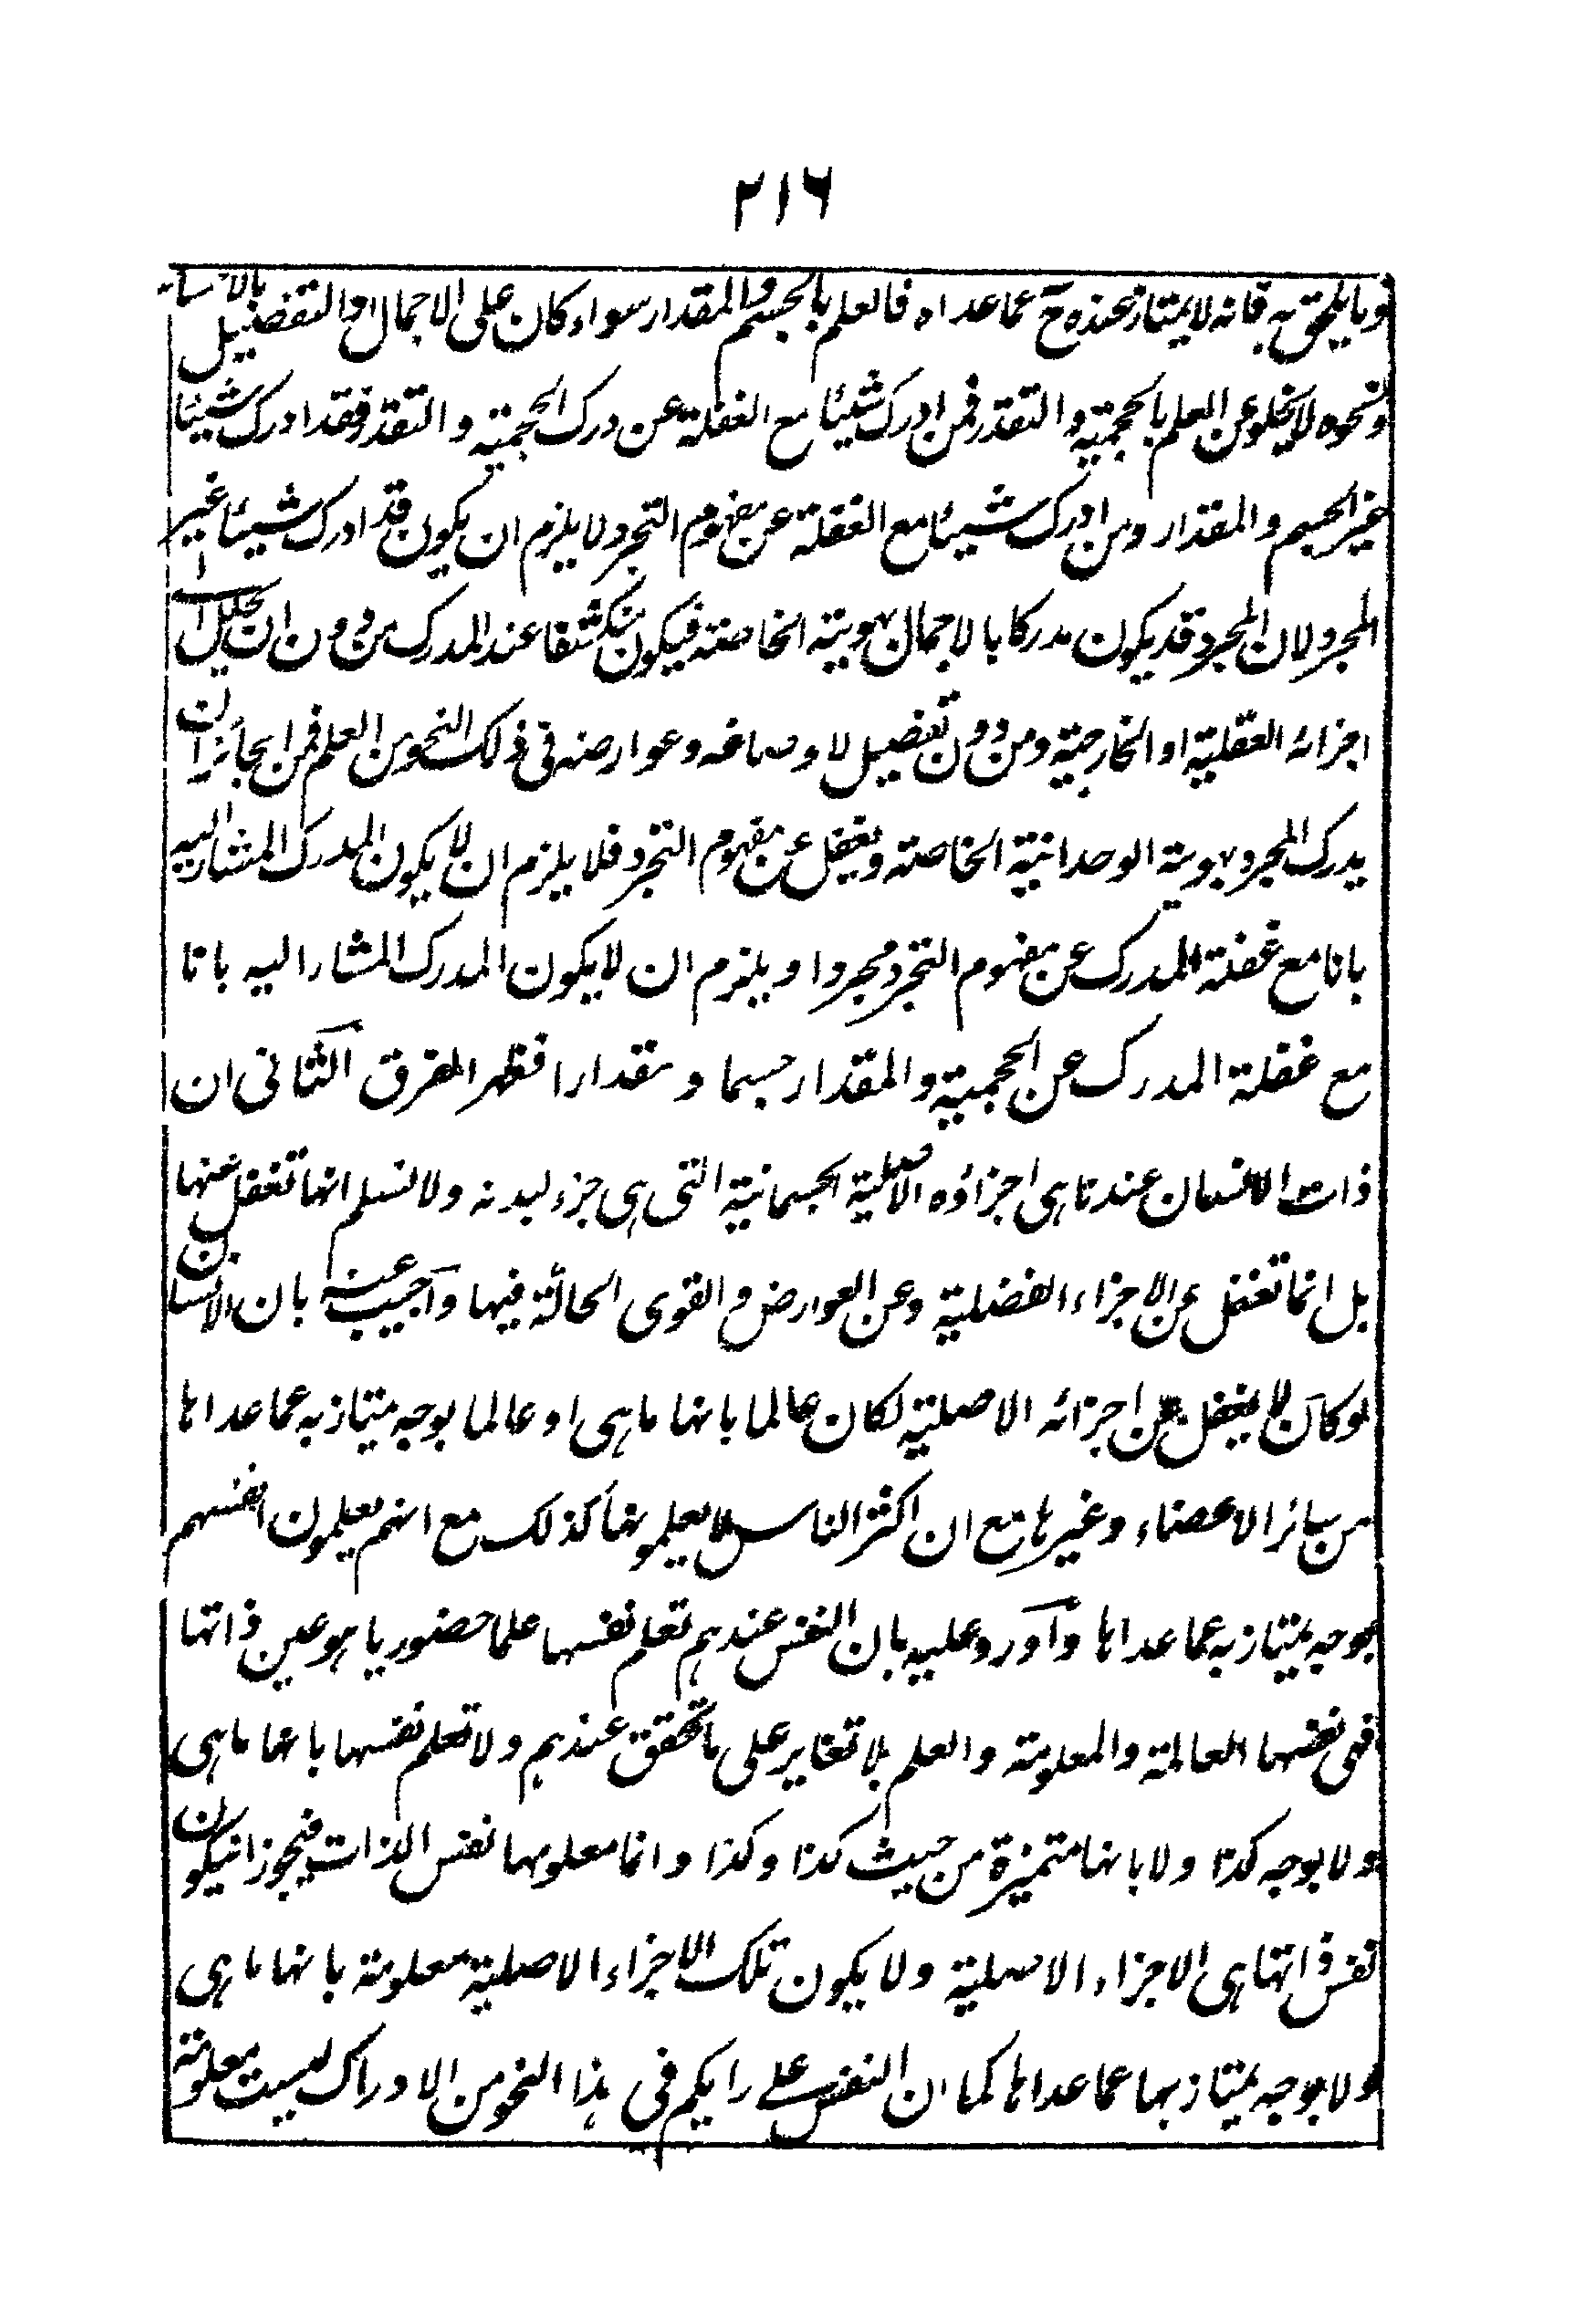 ٢١٦
وما يلحق به فانه لا يمتاز عنده ح عما عداه فالعلم بالجسم والمقدار سواء كان على الاجمال او التفصيل بالانسان
ونحوه لا يخلو عن العلم بالحجمية والتقدر فمن ادرك شيئا مع الغفلة عن درك الحجمية والتقدر فقد ادرك شيئا
غير الجسم والمقدار ومن ادرك شيئا مع الغفلة عن مفهوم التجرد لا يلزم ان يكون قد ادرك شيئا غير
المجرد لان المجرد قد يكون مدركا بالاجمال بهويته الخاصة فيكون منكشفا عند المدرك من دون ان تحليل الى
اجزائه العقلية او الخارجية ومن دون تفصيل لاوصافه وعوارضه فى ذلك النحو من العلم فمن الجائز ان
يدرك المجرد بهويته الوحدانية الخاصة ويغفل عن مفهوم التجرد فلا يلزم ان لا يكون المدرك المشار اليه
بانا مع غفلة المدرك عن مفهوم التجرد مجردا ويلزم ان لا يكون المدرك المشار اليه بانا
مع غفلة المدرك عن الحجمية والمقدار جسما ومقدارا فظهر الفرق الثانى ان
ذات الانسان عندنا هى اجزاؤه الاصلية الجسمانية التى هى جزء لبدنه ولا نسلم انها تغفل عنها
بل انما تغفل عن الاجزاء الفضلية وعن العوارض والقوى الحالة فيها واجيب عنه بان الانسان
لو كان لا يغفل عن اجزائه الاصلية لكان عالما بانها ما هى او عالما بوجه يمتاز به عما عداها
من سائر الاعضاء وغيرها مع ان اكثر الناس لا يعلمونها كذلك مع انهم يعلمون انفسهم
بوجه يمتاز به عما عداها واورد عليه بان النفس عندهم تعلم نفسها علما حضوريا هو عين ذاتها
فهى نفسها العالمة والمعلومة والعلم بلا تغاير على ما تحقق عندهم ولا تعلم نفسها بانها ما هى
ولا بوجه كذا ولا بانها متميزة من حيث كذا وكذا وانما معلومها نفس الذات فيجوز ان يكون
نفس ذاتها هى الاجزاء الاصلية ولا يكون تلك الاجزاء الاصلية معلومة بانها ما هى
ولا بوجه يمتاز بها عما عداها كما ان النفس على رايكم فى هذا النحو من الادراك ليست معلومة